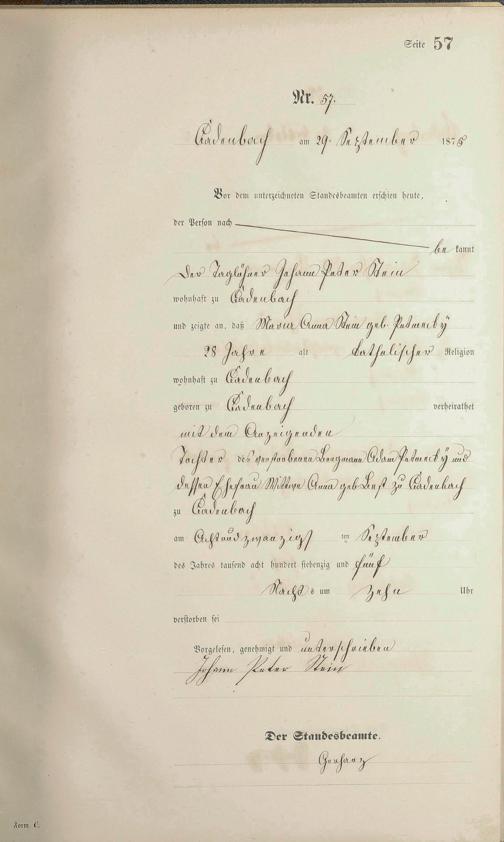 Seite 57
Nr. 57.
Cadenbach am 29. September 1875
Vor dem unterzeichneten Standesbeamten erschien heute,
der Person nach
be kannt
der Taglöhner Johann Peter Stein
wohnhaft zu Cadenbach
und zeigte an, daß Maria Anna Stein geb.
28 Jahre alt katholischer Religion
wohnhaft zu Cadenbach
geboren zu Cadenbach verheirathet
mit dem Anzeigenden
Tochter des verstorbenen Bergmann Adam und
dessen Ehefrau Wittwe Anna geb. zu Cadenbach
zu Cadenbach
am Achtundzwanzigs ten September
des Jahres tausend acht hundert siebenzig und fünf
Nachts um zehn Uhr
verstorben sei
Vorgelesen, genehmigt und unterschrieben
Johann Peter Stein
Der Standesbeamte.
Form. C.